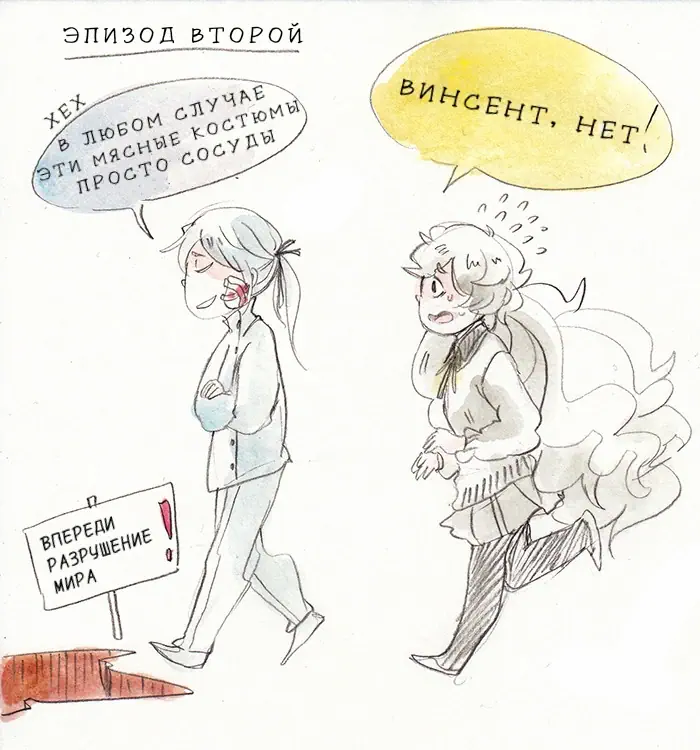 ЭПИЗОД ВТОРОЙ
ХЕХ
В ЛЮБОМ СЛУЧАЕ
ЭТИ МЯСНЫЕ КОСТЮМЫ
ПРОСТО СОСУДЫ
ВИНСЕНТ, НЕТ!
ВПЕРЕДИ
РАЗРУШЕНИЕ
МИРА !